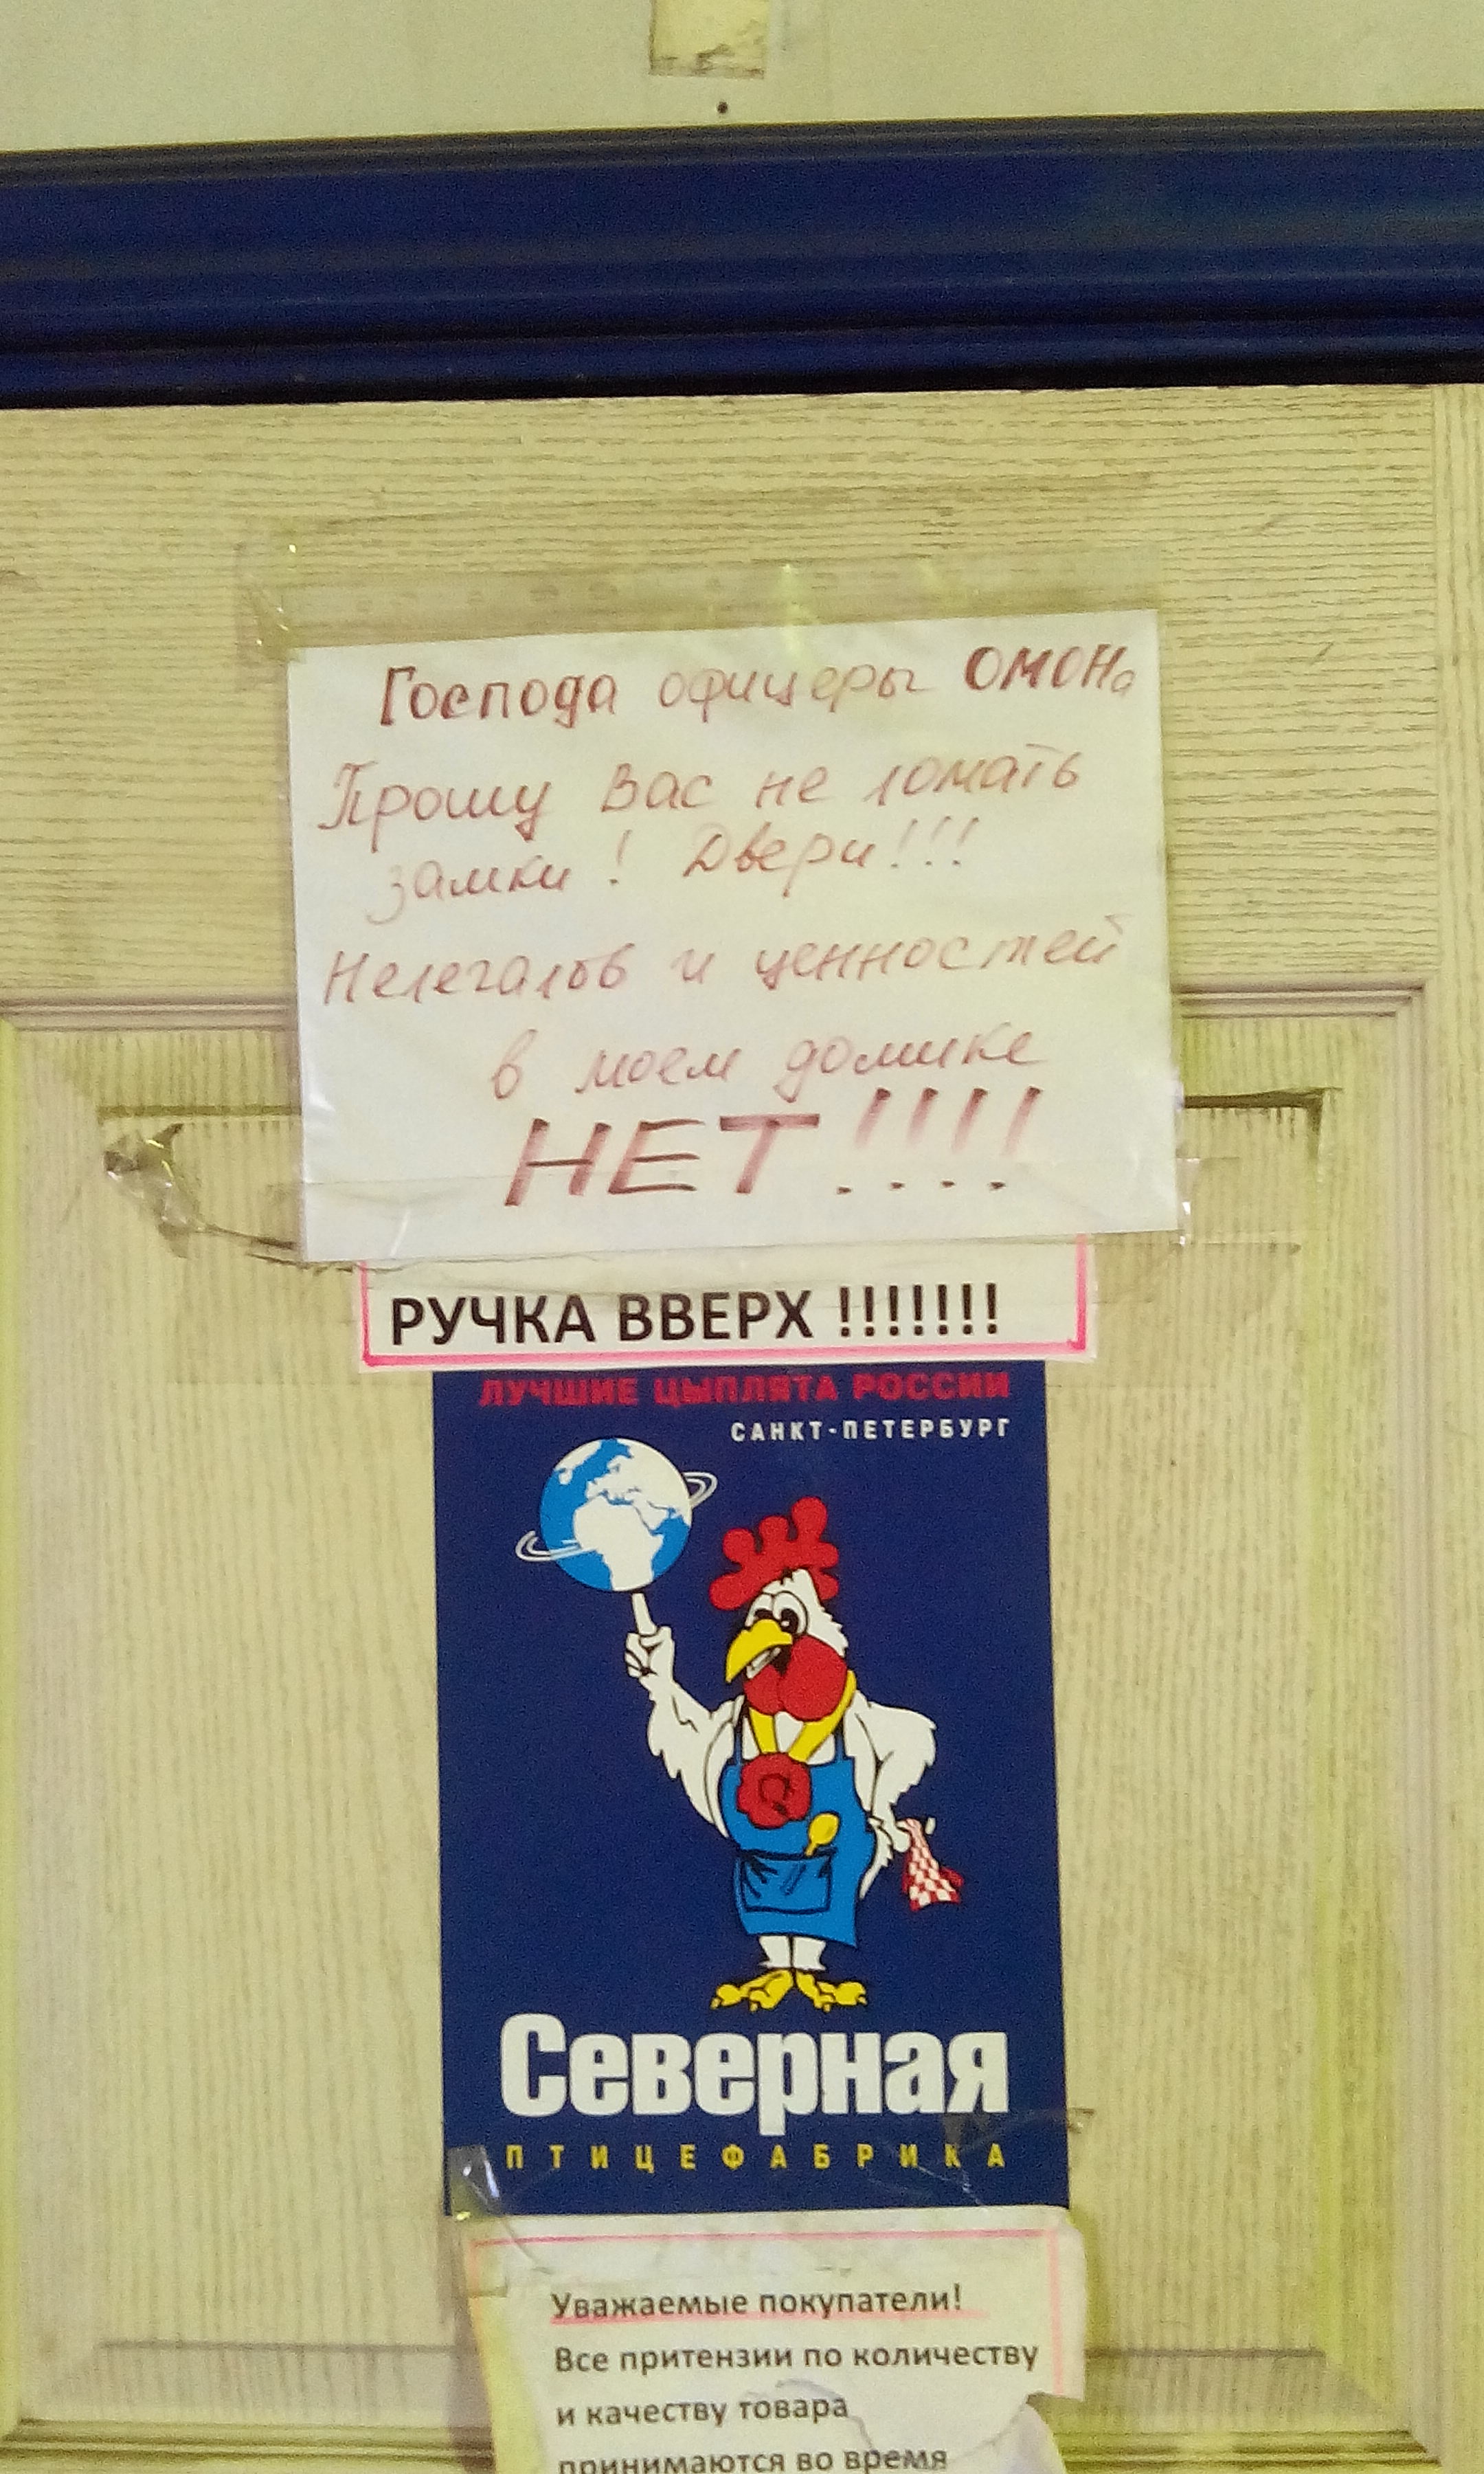 Господа офицеры ОМОНа
Прошу Вас не ломать
замки! Двери!!!
Нелегалов и ценностей
в моем домике
НЕТ!!!!
РУЧКА ВВЕРХ !!!!!!!
ЛУЧШИЕ ЦЫПЛЯТА РОССИИ
САНКТ-ПЕТЕРБУРГ
Северная
ПТИЦЕФАБРИКА
Уважаемые покупатели!
Все притензии по количеству
и качеству товара
принимаются во время